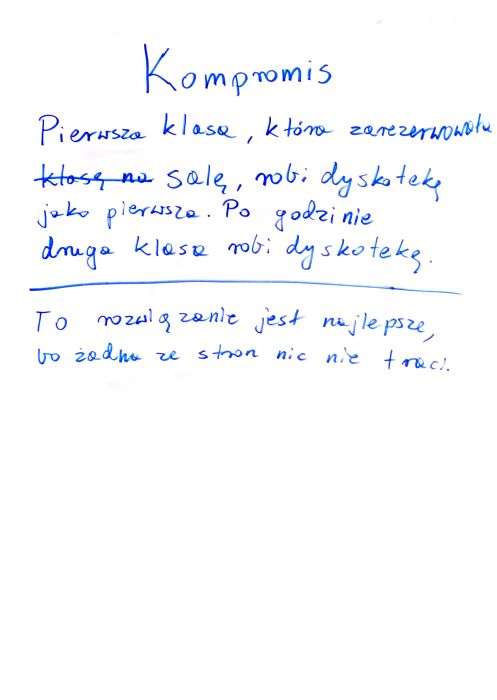 Kompromis
Pierwsza klasa, która zarezerwowała
klasę na salę, robi dyskotekę
jako pierwsza. Po godzinie
druga klasa robi dyskotekę.
To rozwiązanie jest najlepsze,
bo żadna ze stron nic nie traci.